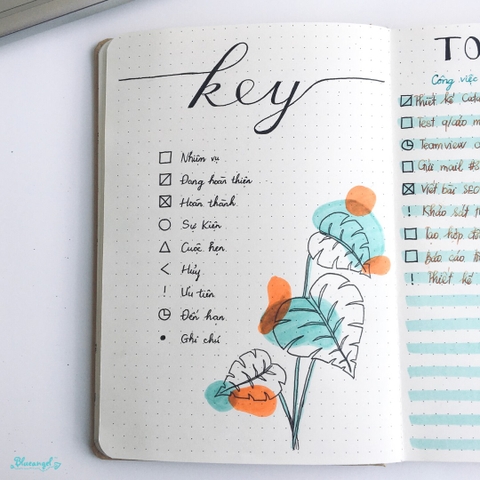 key
Nhiệm vụ
Đang hoàn thiện
Hoàn thành
Sự kiện
Cuộc hẹn
Hủy
! Ưu tiên
Đến hạn
Ghi chú
TO
Công việc
Thiết kế
Test q/cáo
Teamview
Gửi mail
Viết bài SEO
! Khảo sát
báo cáo
! Thiết kế
Bluangel